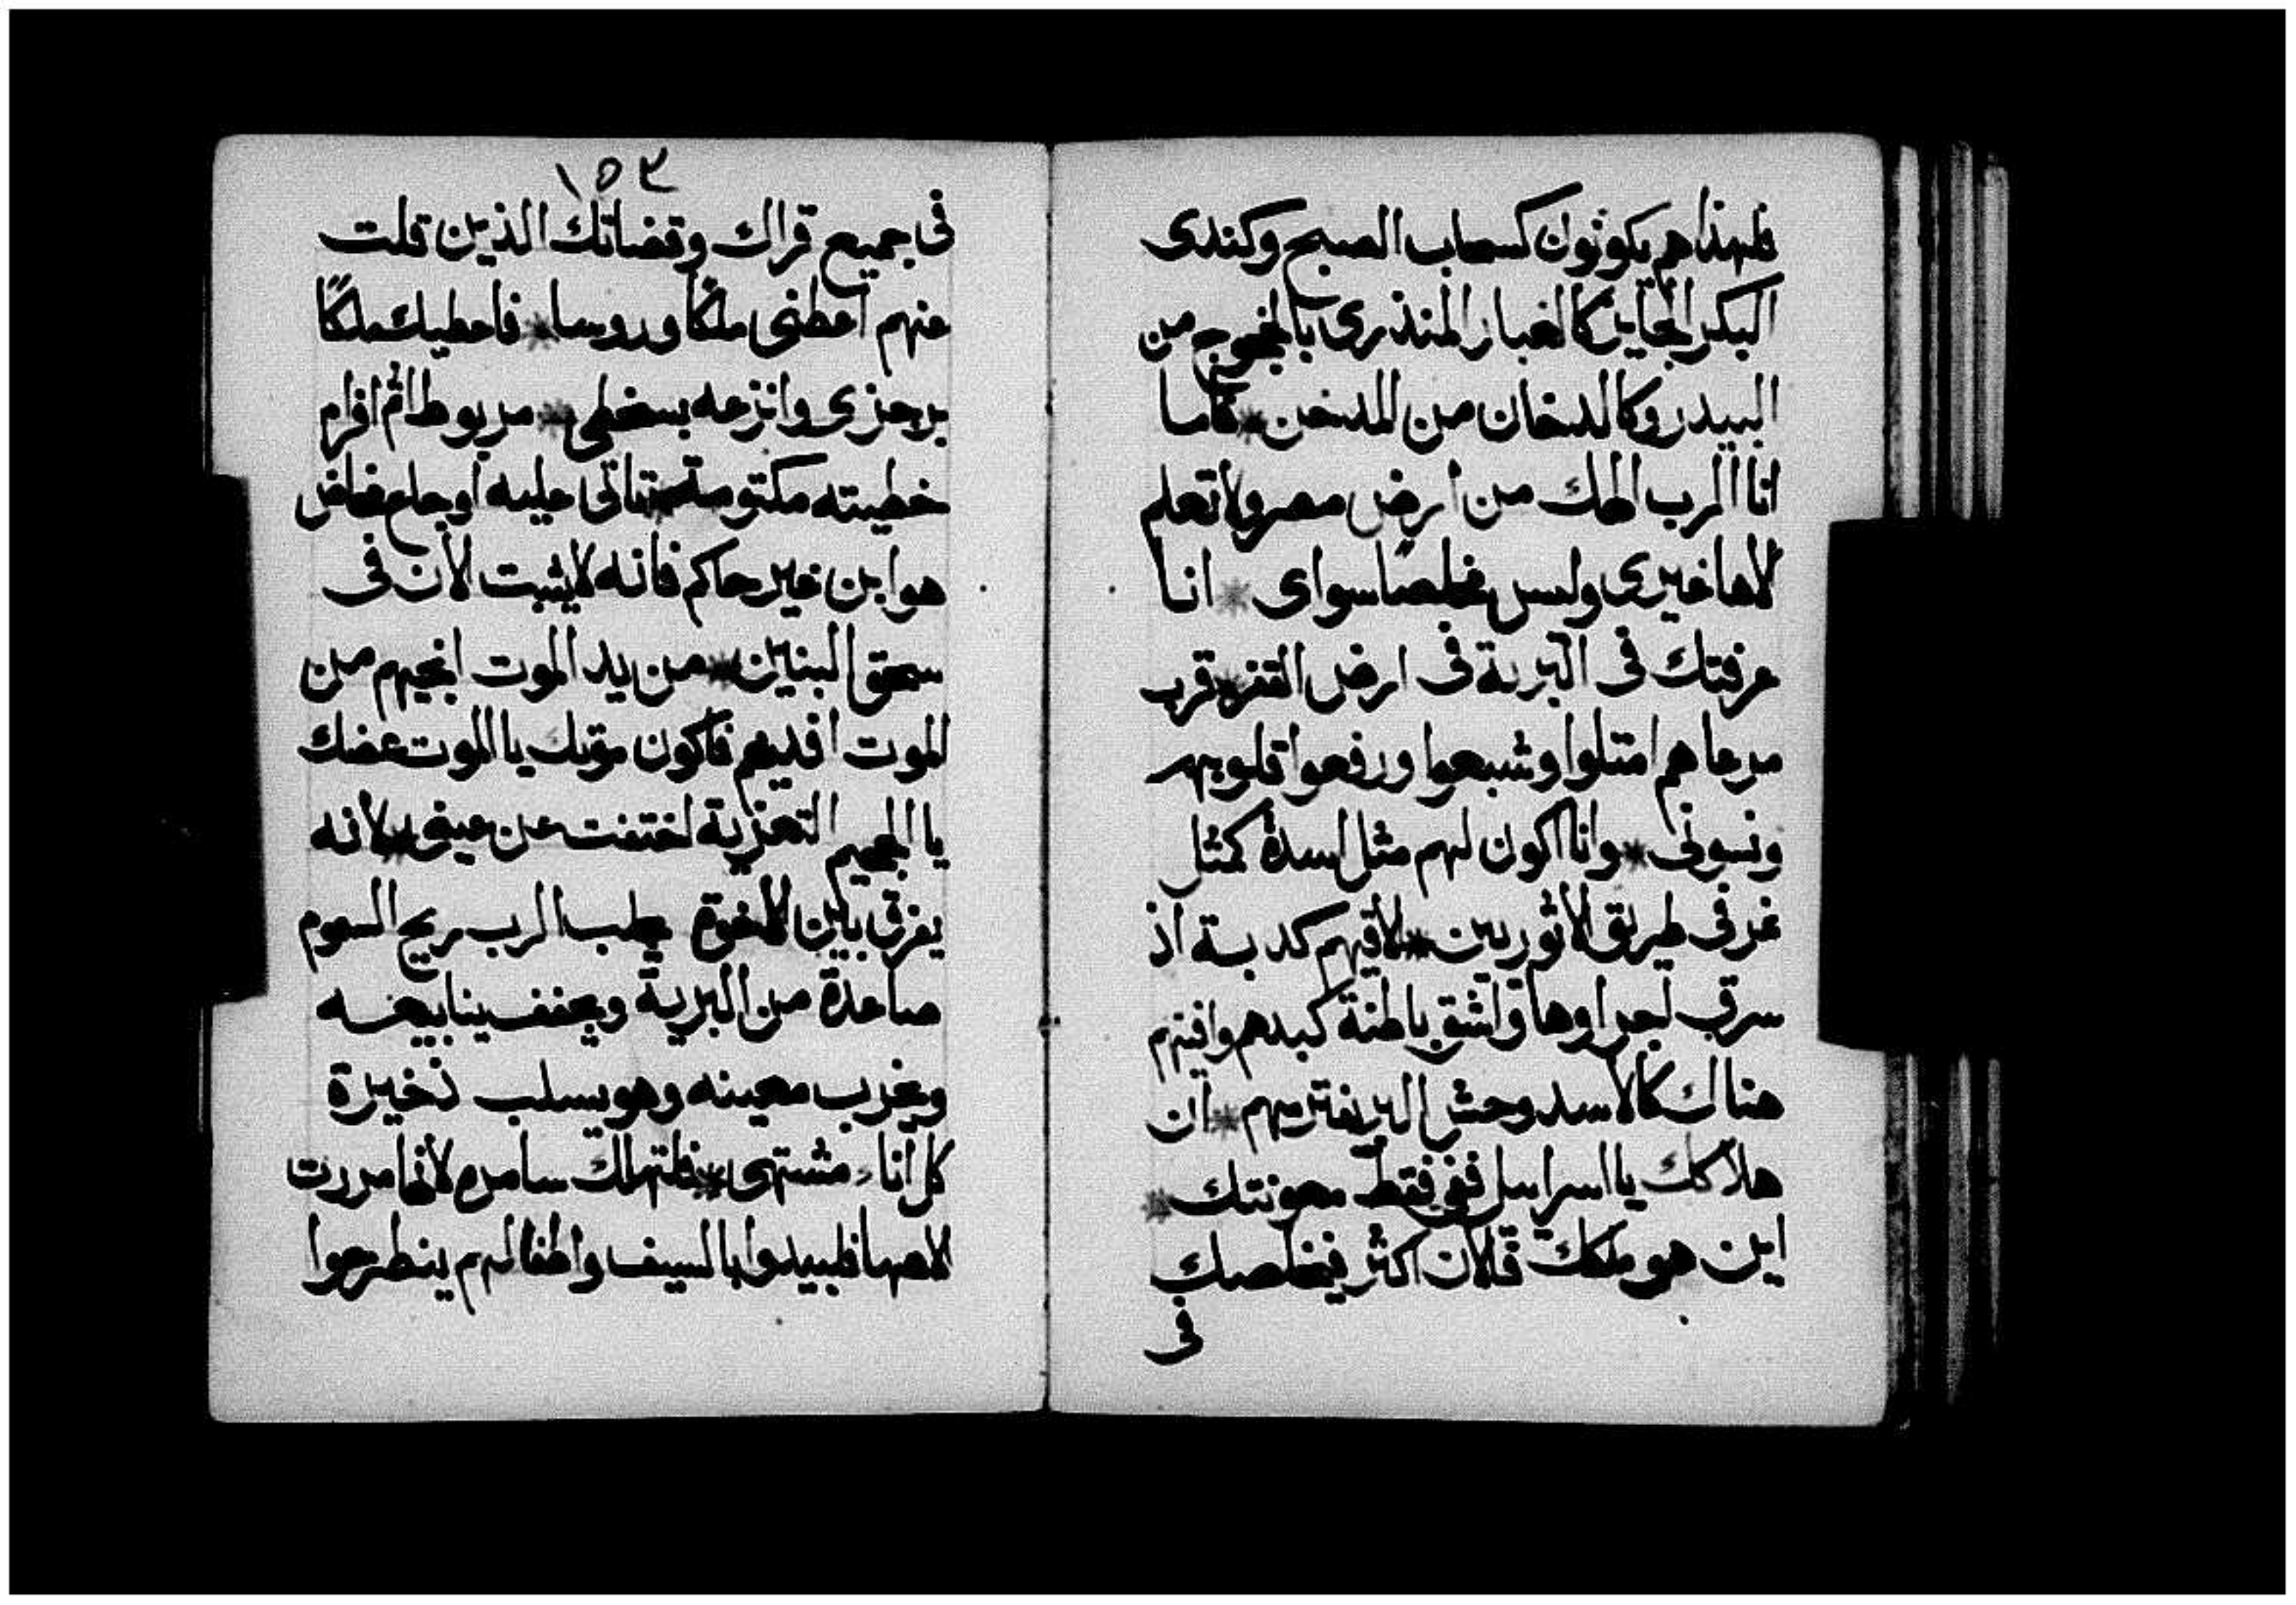 فلهذا هم يكونون كسحاب الصبح وكندى
البكر الجايز كالغبار المنذرى بالخجوج من
البيدر وكالدخان من المدخن * فاما
انا الرب الهك من ارض مصر ولا تعلم
لاها غيرى وليس مخلصا سواى * انا
عرفتك فى البرية فى ارض القفره قرب
مرعاهم امتلوا وشبعوا ورفعوا قلوبهم
ونسونى * وانا اكون لهم مثل اسدة كمثل
غر فى طريق الاثوريين * لاقيهم كدبة اذ
سرقب اجراوها واشق باطنة كبدهم وافيتهم
هناك كالاسد وحش البر يفتريهم * ان
هلاكك يا اسراييل ففى فقط معونتك *
اين هو ملكك فلان اكثر فيخلصك
فى
١٥٣
فى جميع قراك وقضاتك الذين قلت
عنهم اعطنى ملكًا وروسا * فاعطيك ملكًا
برجزى وانزعه بسخطى * مربوط اثم افرام
خطيته مكتومة * تاتى عليه اوجاع مخاض
هو ابن غير حاكم فانه لا يثبت الان فى
سحق البنين * من يد الموت انجيهم من
الموت افديهم فاكون موتك يا الموت عضك
يا الجحيم التعزية اختفت عن عينى * لانه
يفرق بين الاخوة يجلب الرب ريح السموم
صاعدة من البرية ويجفف ينابيعه
ويخرب معينه وهو يسلب ذخيرة
كل اناء مشتهى * فلتهلك سامره لانها مررت
لاهها فليبيدوا بالسيف واطفالهم ينطرحوا